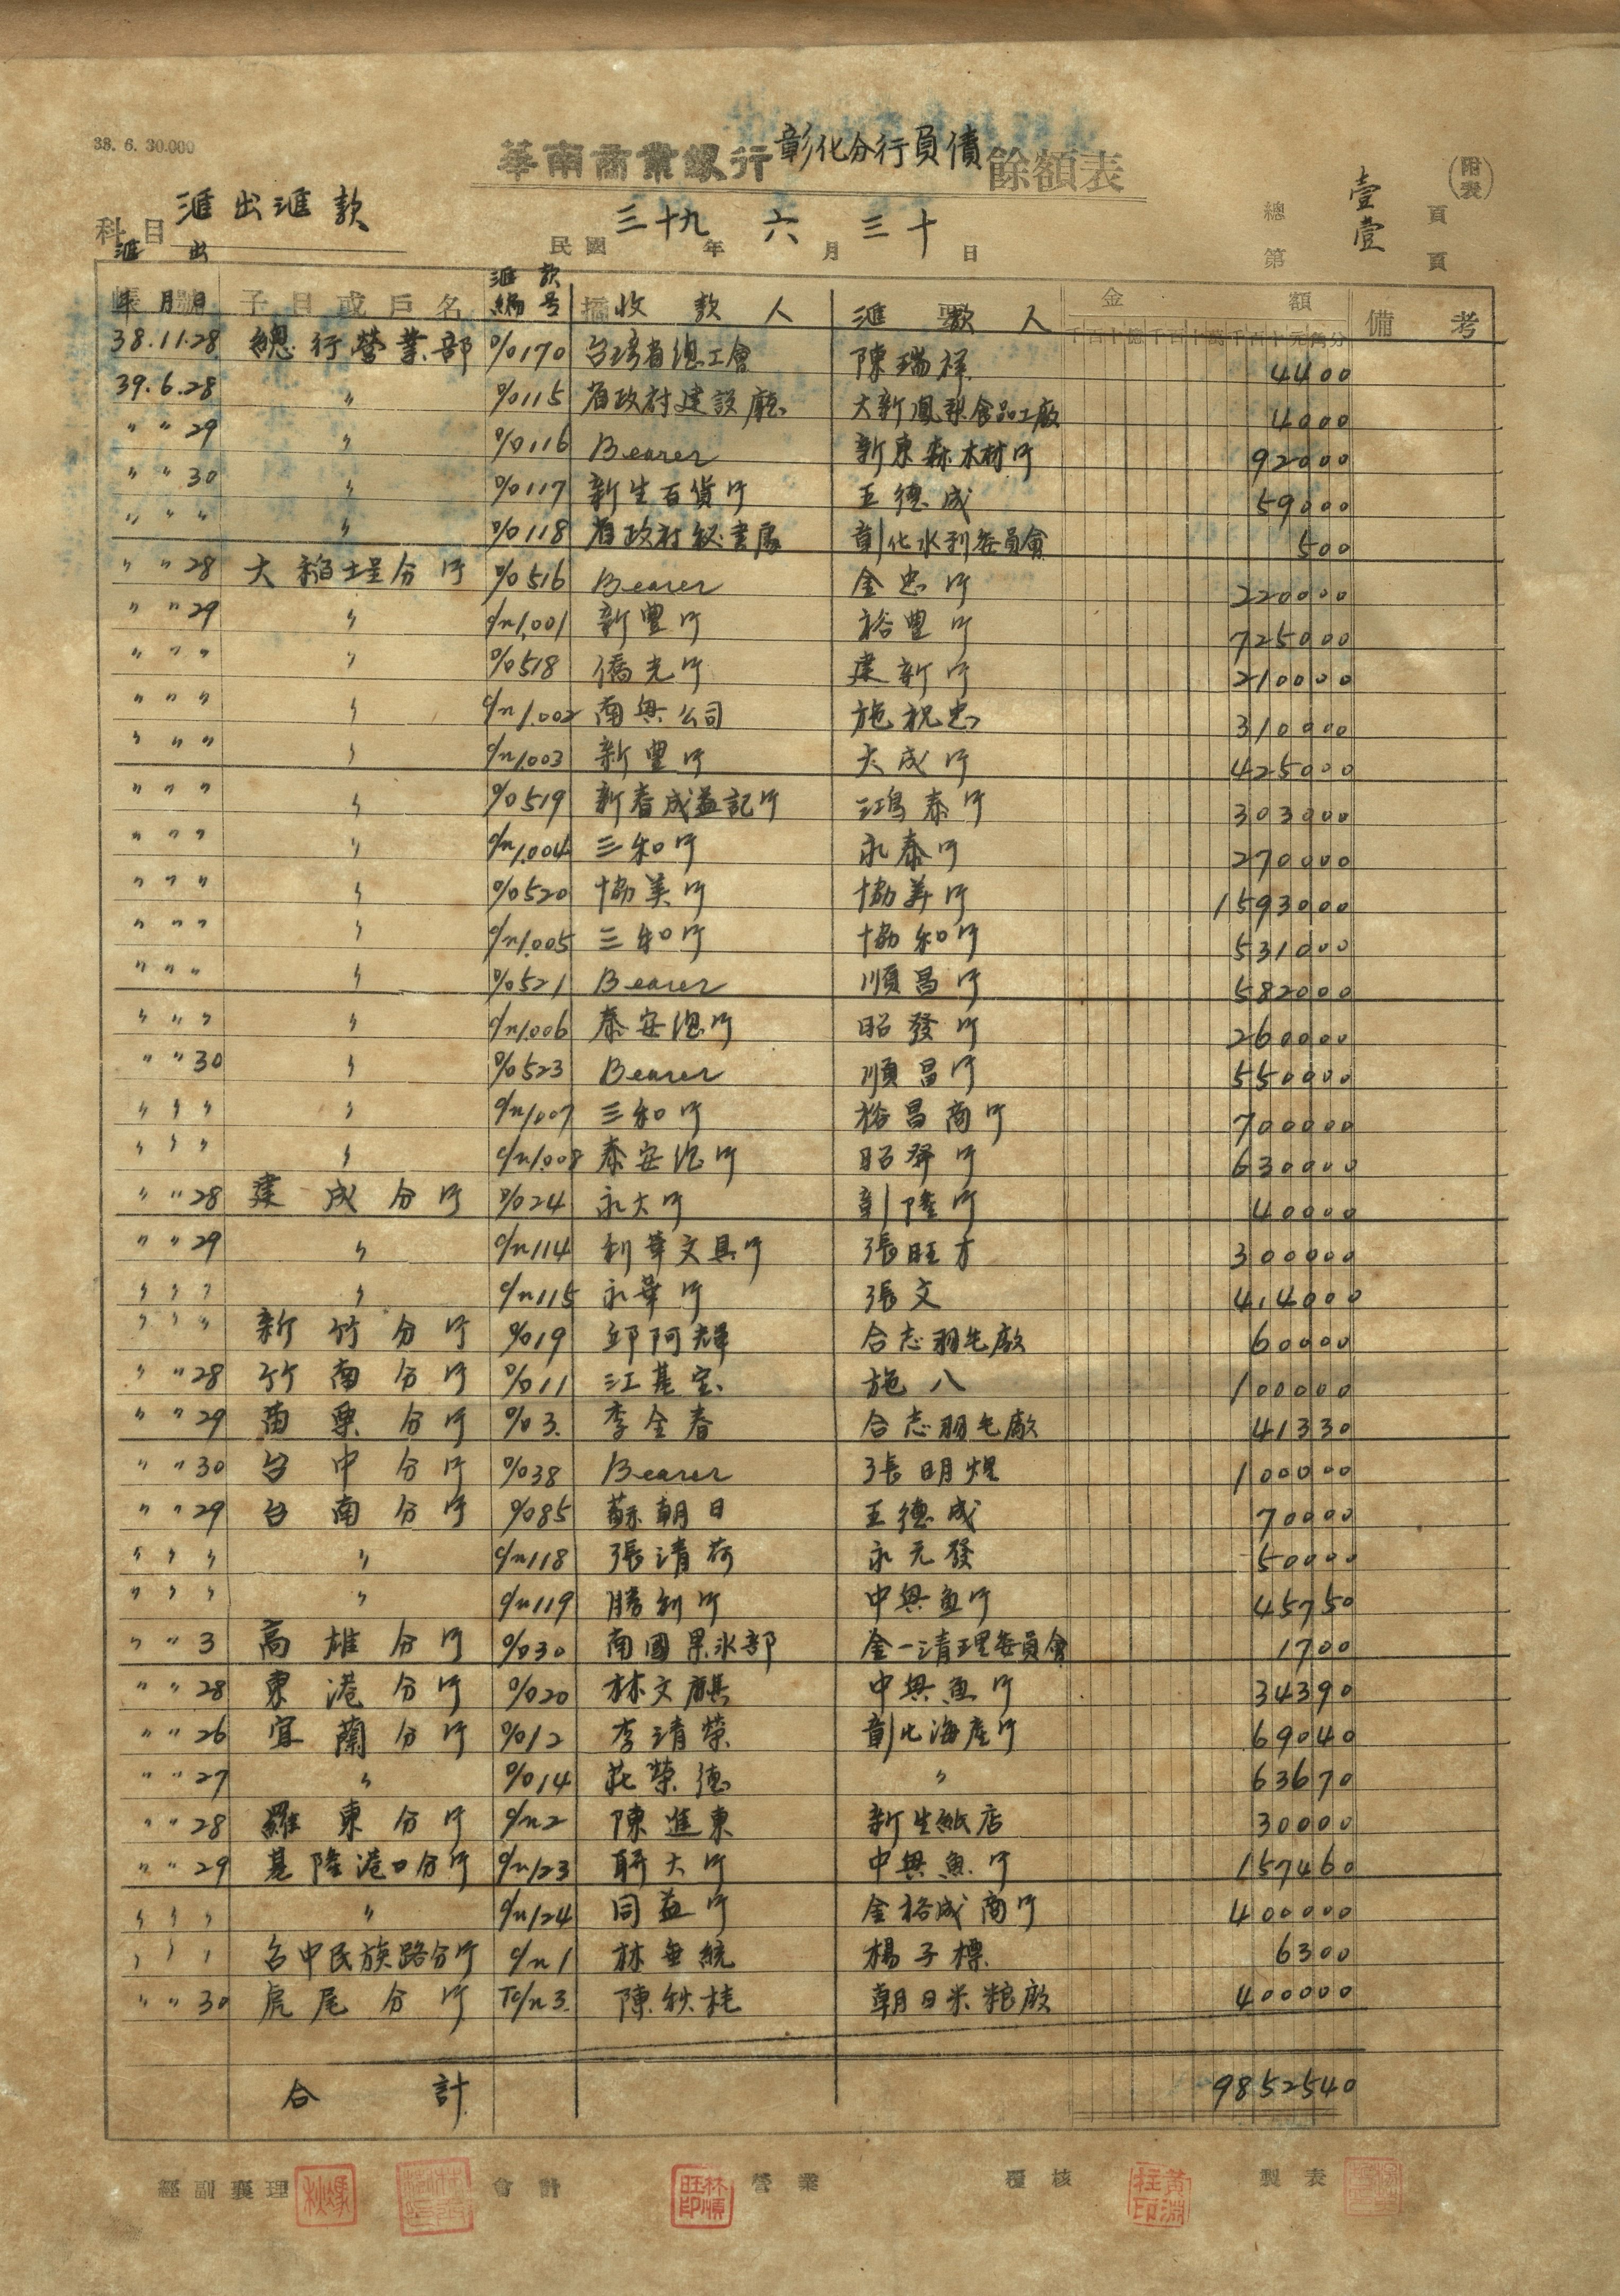 38. 6. 30.000
華南商業銀行彰化分行負債餘額表
(附表)
科目 滙出滙款
民國三十九年六月三十日
總壹頁
第壹頁
滙出年月日 子目或戶名 滙款編号 收款人 滙款人 金額 備考
千百十億千百十萬千百十元角分
38.11.28 總行營業部 %0170 台湾省總工會 陳瑞祥 4400
39.6.28 〃 %0115 省政府建設廳 大新鳳梨食品工廠 4000
〃 〃 29 〃 %0116 Bearer 新東森木材行 92000
〃 〃 30 〃 %0117 新生百貨行 王德成 59000
〃 〃 〃 〃 %0118 省政府秘書處 彰化水利委員會 500
〃 〃 28 大稻埕分行 %0516 Bearer 金忠行 220000
〃 〃 29 〃 d/n1.001 新豐行 裕豐行 725000
〃 〃 〃 〃 %0518 僑光行 建新行 210000
〃 〃 〃 〃 d/n1.002 南興公司 施祝忠 310000
〃 〃 〃 〃 d/n1.003 新豐行 大成行 425000
〃 〃 〃 〃 %0519 新春成益記行 鴻泰行 303000
〃 〃 〃 〃 d/n1.004 三和行 永泰行 270000
〃 〃 〃 〃 %0520 協美行 協美行 1593000
〃 〃 〃 〃 d/n1.005 三和行 協和行 531000
〃 〃 〃 〃 %0521 Bearer 順昌行 582000
〃 〃 〃 〃 d/n1.006 泰安總行 昭發行 260000
〃 〃 30 〃 %0523 Bearer 順昌行 550000
〃 〃 〃 〃 d/n1007 三和行 裕昌商行 700000
〃 〃 〃 〃 d/n1.008 泰安總行 昭發行 630000
〃 〃 28 建成分行 %024 永大行 彰隆行 40000
〃 〃 29 〃 d/n114 利華文具行 張旺才 300000
〃 〃 〃 〃 d/n115 永華行 張文 414000
〃 〃 〃 新竹分行 %019 邱阿輝 合志羽毛廠 60000
〃 〃 28 竹南分行 %011 江基宝 施八 100000
〃 〃 29 苗栗分行 %03. 李全春 合志羽毛廠 41330
〃 〃 30 台中分行 %038 Bearer 張明煌 100000
〃 〃 29 台南分行 %085 蘇朝日 王德成 70000
〃 〃 〃 〃 d/n118 張清荷 永元發 50000
〃 〃 〃 〃 d/n119 勝利行 中興魚行 45750
〃 〃 3 高雄分行 %030 南國果氷部 金一清理委員會 1700
〃 〃 28 東港分行 %020 林文麒 中興魚行 34390
〃 〃 26 宜蘭分行 %012 李清榮 彰化海產行 69040
〃 〃 27 〃 %014 莊榮德 〃 63670
〃 〃 28 羅東分行 d/n2 陳進東 新生紙店 30000
〃 〃 29 基隆港口分行 d/n123 聯大行 中興魚行 157460
〃 〃 〃 〃 d/n124 同益行 金裕成商行 400000
〃 〃 〃 台中民族路分行 d/n1 林垂統 楊子標 6300
〃 〃 30 虎尾分行 Td/n3. 陳秋桂 朝日米粮廠 400000
合計 9852540
經副襄理 會計 林順旺印 營業 覆核 黃淵柱印 製表